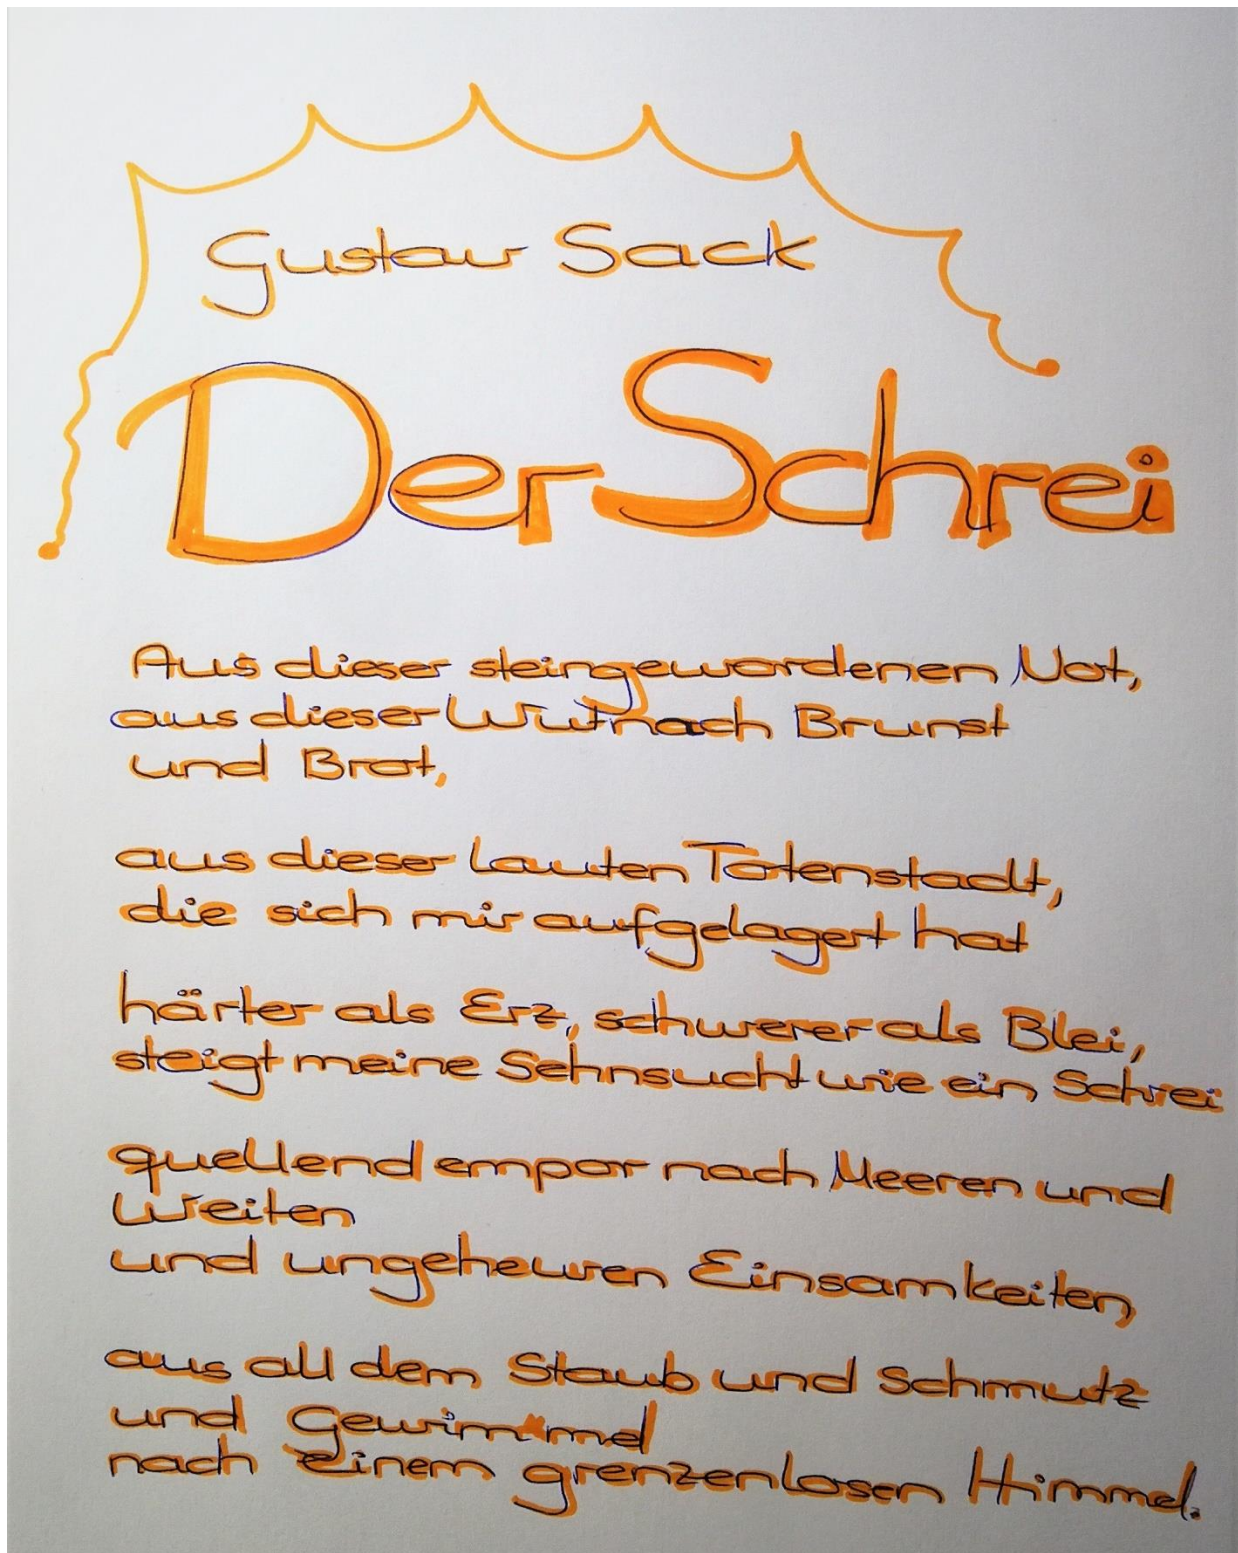 Gustav Sack
Der Schrei
Aus dieser steingewordenen Not,
aus dieser Wut nach Brunst
und Brot,
aus dieser lauten Totenstadt,
die sich mir aufgelagert hat
härter als Erz, schwerer als Blei,
steigt meine Sehnsucht wie ein Schrei
quellend empor nach Meeren und
Weiten
und ungeheuren Einsamkeiten,
aus all dem Staub und Schmutz
und Gewimmel
nach Einem grenzenlosen Himmel.